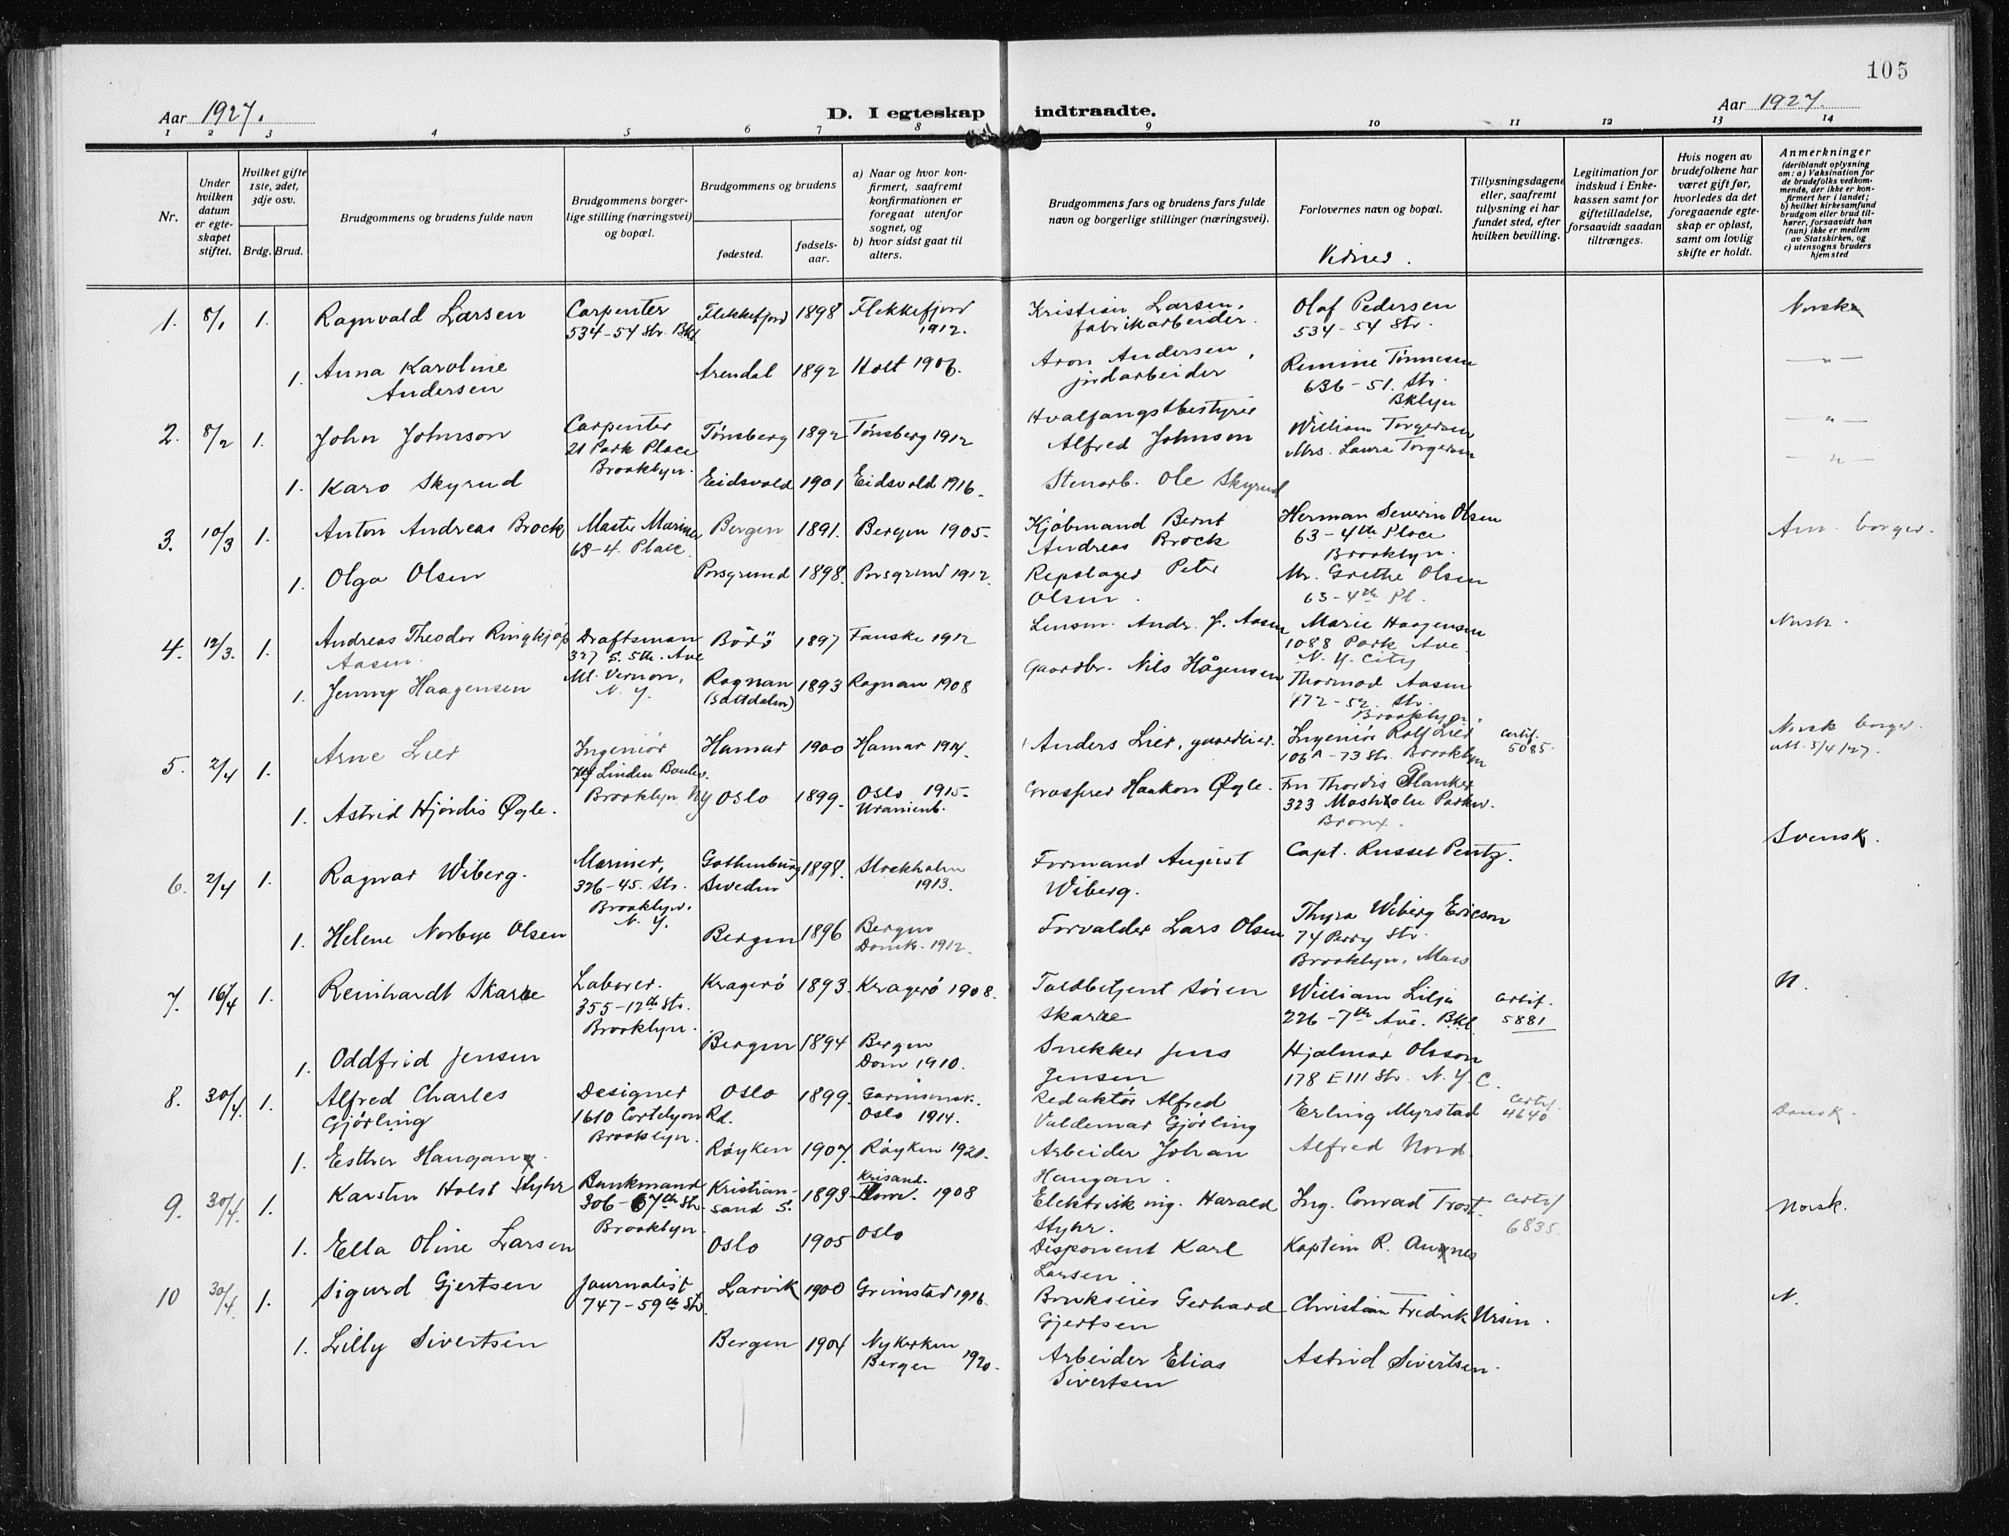 105
Aar 1927.
D. I egteskap indtraadte.
Aar 1927.
1 2 3 4 5 6 7 8 9 10 11 12 13 14
Nr.
Under hvilken datum er egteskapet stiftet.
Hvilket gifte 1ste, 2det, 3dje osv.
Brdg. Brud.
Brudgommens og brudens fulde navn
Brudgommens borgerlige stilling (næringsvei) og bopæl.
Brudgommens og brudens
fødested.
fødselsaar.
a) Naar og hvor konfirmert, saafremt konfirmationen er foregaat utenfor sognet, og
b) hvor sidst gaat til alters.
Brudgommens fars og brudens fars fulde navn og borgerlige stillinger (næringsvei).
Forlovernes navn og bopæl.
Vidner.
Tillysningsdagene eller, saafremt tillysning ei har fundet sted, efter hvilken bevilling.
Legitimation for indskud i Enkekassen samt for giftetilladelse, forsaavidt saadan tiltrænges.
Hvis nogen av brudefolkene har været gift før, hvorledes da det foregaaende egteskap er opløst, samt om lovlig skifte er holdt.
Anmerkninger
(deriblandt oplysning om: a) Vaksination for de brudefolks vedkommende, der ikke er konfirmert her i landet; b) hvilket kirkesamfund brudgom eller brud tilhører, forsaavidt han (hun) ikke er medlem av Statskirken, og c) utensogns bruders hjemsted
1. 8/1 1. Ragnvald Larsen Carpenter 534-54 Str. Bkl Flekkefjord 1898 Flekkefjord 1912. Kristian Larsen, fabrikarbeider. Olaf Pedersen 534-54 Str. Norsk
1. Anna Karoline Andersen Arendal 1892 Holt 1906. Aron Andersen, jordarbeider Remine Tønnesen 636-51. Str. Bklyn —"—
2. 8/2 1. John Johnson Carpenter 21 Park Place Brooklyn. Tønsberg 1892 Tønsberg 1912 Hvalfangstbestyrer Alfred Johnson William Torgersen —"—
1. Karo Skyrud Eidsvold 1901 Eidsvold 1916. Stenarb. Ole Skyrud Mrs. Laura Torgersen —"—
3. 10/3 1. Anton Andreas Brock Master Mariner 63-4. Place. Bergen 1891. Bergen 1905. Kjøbmand Bernt Andreas Brock Herman Severin Olsen 63-4th Place Brooklyn. Am. borger.
1. Olga Olsen Porsgrund 1898. Porsgrund 1912. Repslager Peter Olsen. Mr. Grethe Olsen 63-4th Pl.
4. 12/3. 1. Andreas Theodor Ringkjøp Aasen. Draftsman 327 S. 5th. Ave Mt. Vernon, N. Y. Bödö 1897 Fauske 1912 Lensm. Andr. J. Aasen Marie Haagensen 1088 Park Ave N. Y. City Norsk.
1. Jenny Haagensen Rognan (Saltdalen) 1893 Rognan 1908 Gaardbr. Nils Hågensen Thormod Aasen 472-52. Str. Brooklyn.
5. 2/4 1. Arne Lier Ingeniør Linden Boulev. Brooklyn NY Hamar 1900 Hamar 1914. Anders Lier, gaardeier. Ingeniør Rolf Lier 106A-73 Str. Brooklyn Certif. 5085. Norsk borger. att. 5/4 1927.
1. Astrid Hjørdis Øgle. Oslo 1899. Oslo 1915. Uranienb. Grosserer Haakon Øgle. Fru Thordis Planker 323 Mosholu Parkw. Bronx.
6. 2/4 1. Ragnar Wiberg. Mariner, 326-45. Str. Brooklyn. N. Y. Gothenburg Sweden 1898. Stockholm 1913. Formand August Wiberg. Capt. Russel Pentz. Svensk.
1. Helene Norbye Olsen Bergen 1896 Bergen Domk. 1912. Forvalder Lars Olsen Thyra Wiberg Ericson 74 Perry Str. Brooklyn, Mass
7. 16/4 1. Reinhardt Skarre Laborer. 355-12th Str. Brooklyn. Kragerø 1893. Kragerø 1908. Toldbetjent Søren Skarre William Lilja 226-7th Ave. Bkl. Certif. 5881 N.
1. Oddfrid Jensen Bergen 1894 Bergen Dom 1910. Snekker Jens Jensen Hjalmar Olsson 178 E 111 Str. N. Y. C.
8. 30/4. 1. Alfred Charles Gjørling Designer 1610 Cortelyou Rd. Brooklyn. Oslo 1899. Garnisonsk. Oslo 1914. Redaktør Alfred Valdemar Gjørling Erling Myrstad Certif. 4640 Dansk.
1. Esther Haugan Røyken 1907. Røyken 1921. Arbeider Johan Haugan. Alfred Nord
9. 30/4. 1. Karsten Holst Styhr Bankmand 306-67th Str. Brooklyn. Kristiansand S. 1893 Krisand. 1908 Elektrisk ing. Harald Styhr. Ing. Conrad Trost. Certif 6835. Norsk.
1. Ella Oline Larsen Oslo 1905 Oslo Disponent Karl Larsen Kaptein R. Aunnes
10 30/4. 1. Sigurd Gjertsen Journalist 747-59th Str. Larvik 1900 Grimstad 1916. Brukseier Gerhard Gjertsen Christian Fredrik Ursin. N.
1. Lilly Sivertsen Bergen 1904 Nykirken Bergen 1920. Arbeider Elias Sivertsen Astrid Sivertsen.